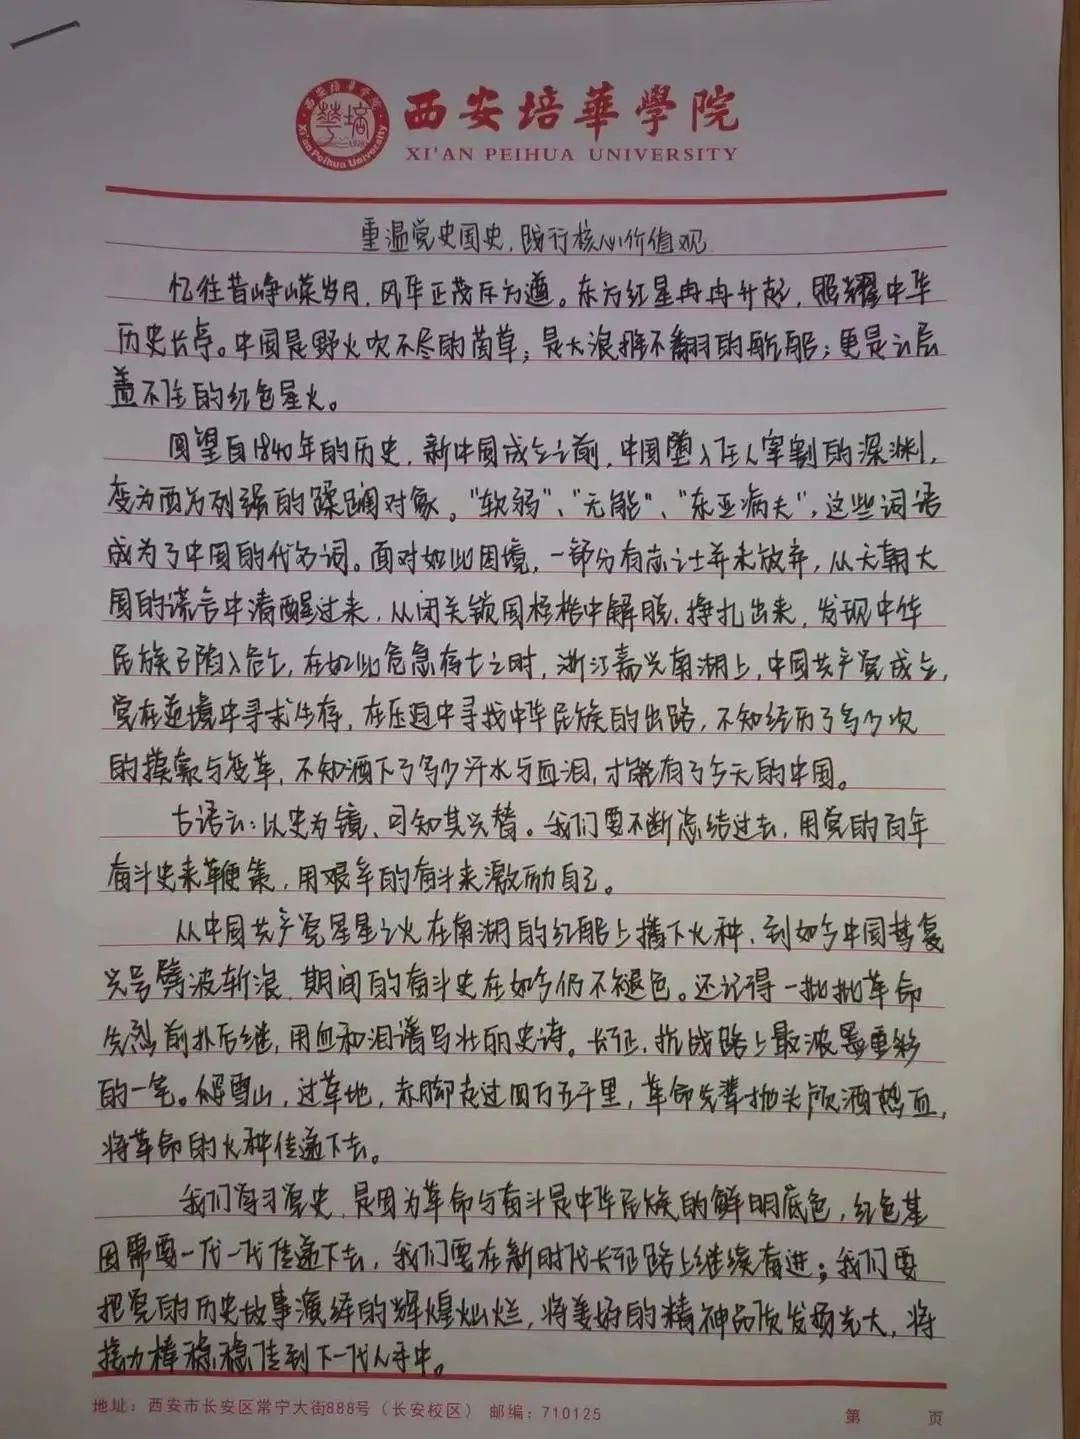 西安培華學院
XI'AN PEIHUA UNIVERSITY
重温党史国史，践行核心价值观
忆往昔峥嵘岁月，风华正茂斥方遒。东方红星冉冉升起，照耀中华
历史长亭。中国是野火吹不尽的茵草；是大浪推不翻的航船；更是云层
盖不住的红色星火。
回望自1840年的历史，新中国成立之前，中国堕入任人宰割的深渊，
变为西方列强的蹂躏对象。“软弱”、“无能”、“东亚病夫”，这些词语
成为了中国的代名词。面对如此困境，一部分有志之士并未放弃，从天朝大
国的谎言中清醒过来，从闭关锁国桎梏中解脱、挣扎出来，发现中华
民族已陷入危亡，在如此危急存亡之时，浙江嘉兴南湖上，中国共产党成立，
党在逆境中寻求生存，在压迫中寻找中华民族的出路，不知经历了多少次
的摸索与变革，不知洒下了多少汗水与血泪，才能有了今天的中国。
古语云：以史为镜、可知其兴替。我们要不断总结过去，用党的百年
奋斗史来鞭策，用艰辛的奋斗来激励自己。
从中国共产党星星之火在南湖的红船上播下火种，到如今中国梦复
兴号劈波斩浪，期间的奋斗史在如今仍不褪色。还记得一批批革命
先烈前扑后继，用血和泪谱写壮丽的史诗。长征，抗战路上最浓墨重彩
的一笔。爬雪山，过草地，赤脚走过四万五千里，革命先辈抛头颅洒热血，
将革命的火种传递下去。
我们学习党史，是因为革命与奋斗是中华民族的鲜明底色，红色基
因需要一代一代传递下去，我们要在新时代长征路上继续奋进；我们要
把党的历史故事演绎的辉煌灿烂，将美好的精神品质发扬光大，将
接力棒稳稳传到下一代人手中。
地址：西安市长安区常宁大街888号（长安校区） 邮编：710125
第 页